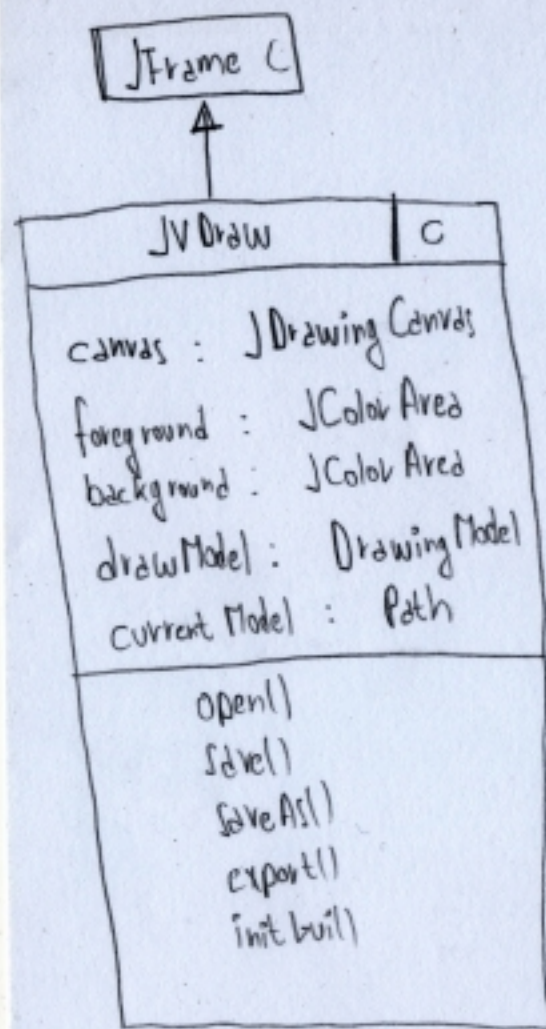 JFrame C
JVDraw C
canvas : JDrawingCanvas
foreground : JColorArea
background : JColorArea
drawModel : DrawingModel
currentModel : Path
open()
save()
saveAs()
export()